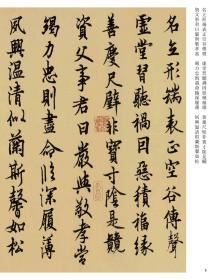 名立形端表正空谷傳聲 虛堂習聽禍因惡積福緣 善慶尺璧非寶寸陰是競
資父事君曰嚴與敬孝當 竭力忠則盡命臨深履薄 夙興溫凊似蘭斯馨如松
名立形端表正空谷傳聲
虛堂習聽禍因惡積福緣
善慶尺璧非寶寸陰是競
資父事君曰嚴與敬孝當
竭力忠則盡命臨深履薄
夙興溫清似蘭斯馨如松